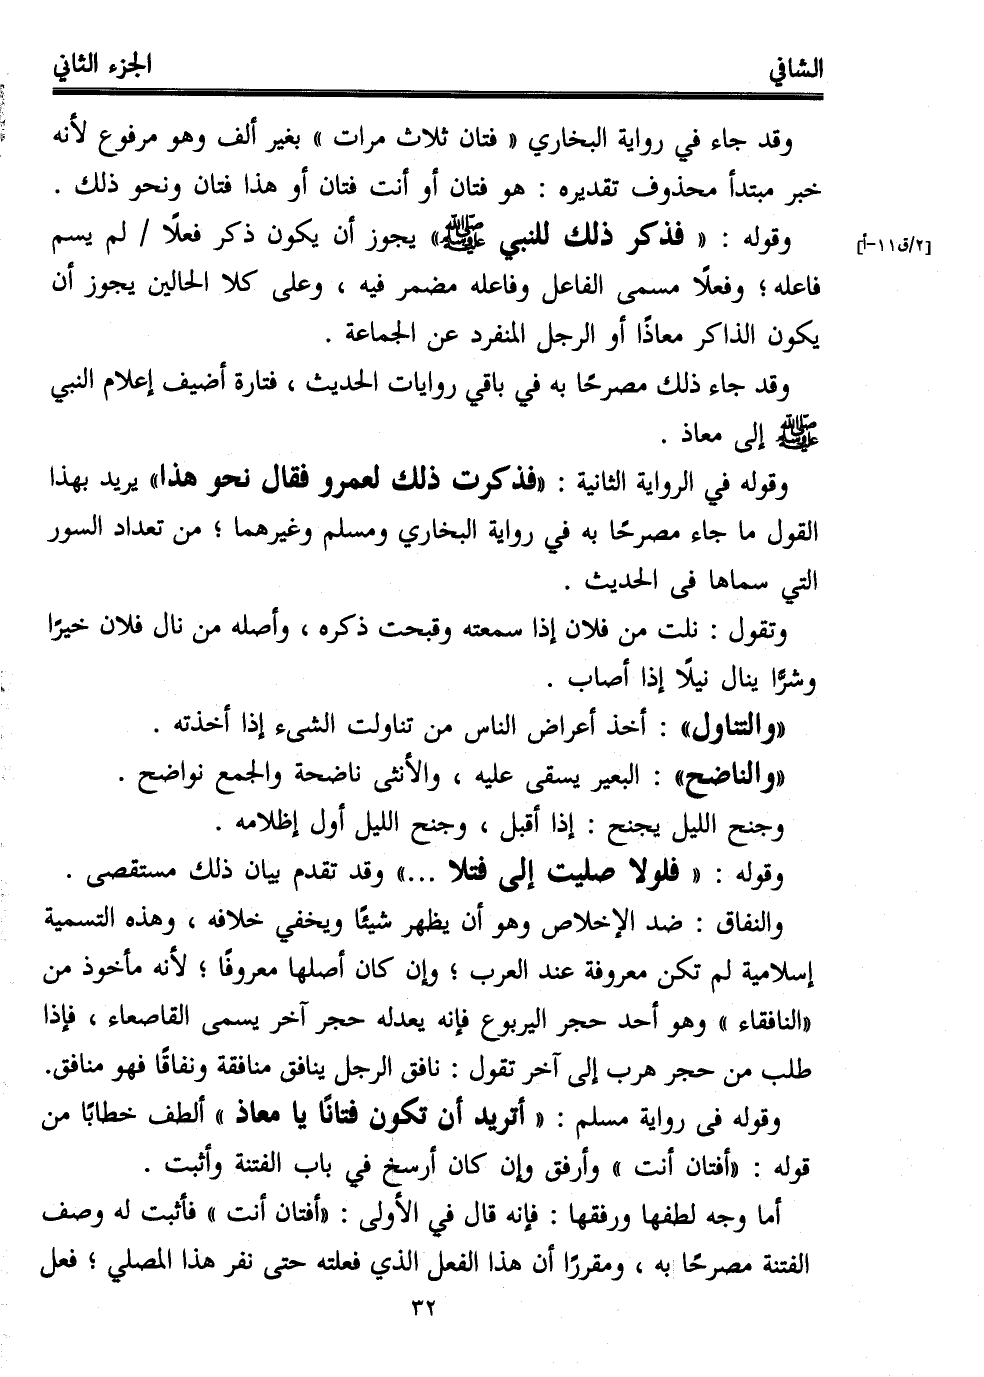 الشافي
الجزء الثاني
وقد جاء في رواية البخاري « فتان ثلاث مرات » بغير ألف وهو مرفوع لأنه
خبر مبتدأ محذوف تقديره : هو فتان أو أنت فتان أو هذا فتان ونحو ذلك .
وقوله : « فذكر ذلك للنبي ﷺ» يجوز أن يكون ذكر فعلًا / لم يسم
[٢/ق١١-أ]
فاعله؛ وفعلًا مسمى الفاعل وفاعله مضمر فيه ، وعلى كلا الحالين يجوز أن
يكون الذاكر معاذًا أو الرجل المنفرد عن الجماعة .
وقد جاء ذلك مصرحًا به في باقي روايات الحديث ، فتارة أضيف إعلام النبي
ﷺ إلى معاذ .
وقوله في الرواية الثانية : «فذكرت ذلك لعمرو فقال نحو هذا» يريد بهذا
القول ما جاء مصرحًا به في رواية البخاري ومسلم وغيرهما ؛ من تعداد السور
التي سماها فى الحديث .
وتقول : نلت من فلان إذا سمعته وقبحت ذكره ، وأصله من نال فلان خيرًا
وشرًّا ينال نيلًا إذا أصاب .
«والتناول» : أخذ أعراض الناس من تناولت الشىء إذا أخذته .
«والناضح» : البعير يسقى عليه ، والأنثى ناضحة والجمع نواضح .
وجنح الليل يجنح : إذا أقبل ، وجنح الليل أول إظلامه .
وقوله : « فلولا صليت إلى فتلا ...» وقد تقدم بيان ذلك مستقصى .
والنفاق : ضد الإخلاص وهو أن يظهر شيئًا ويخفي خلافه ، وهذه التسمية
إسلامية لم تكن معروفة عند العرب ؛ وإن كان أصلها معروفًا ؛ لأنه مأخوذ من
«النافقاء » وهو أحد حجر اليربوع فإنه يعدله حجر آخر يسمى القاصعاء ، فإذا
طلب من حجر هرب إلى آخر تقول : نافق الرجل ينافق منافقة ونفاقًا فهو منافق.
وقوله فى رواية مسلم : « أتريد أن تكون فتانًا يا معاذ » ألطف خطابًا من
قوله : «أفتان أنت » وأرفق وإن كان أرسخ في باب الفتنة وأثبت .
أما وجه لطفها ورفقها : فإنه قال في الأولى : «أفتان أنت » فأثبت له وصف
الفتنة مصرحًا به ، ومقررًا أن هذا الفعل الذي فعلته حتى نفر هذا المصلي ؛ فعل
٣٢